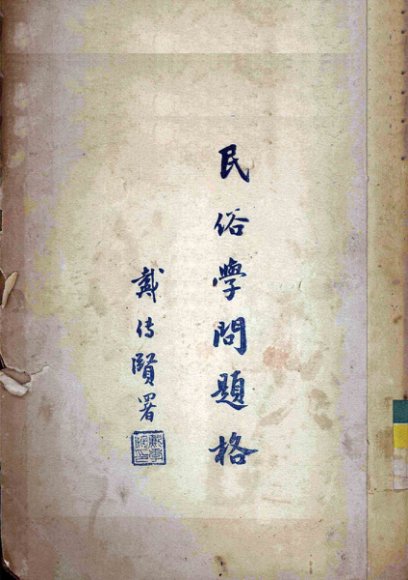 民俗學問題格
戴传賢署